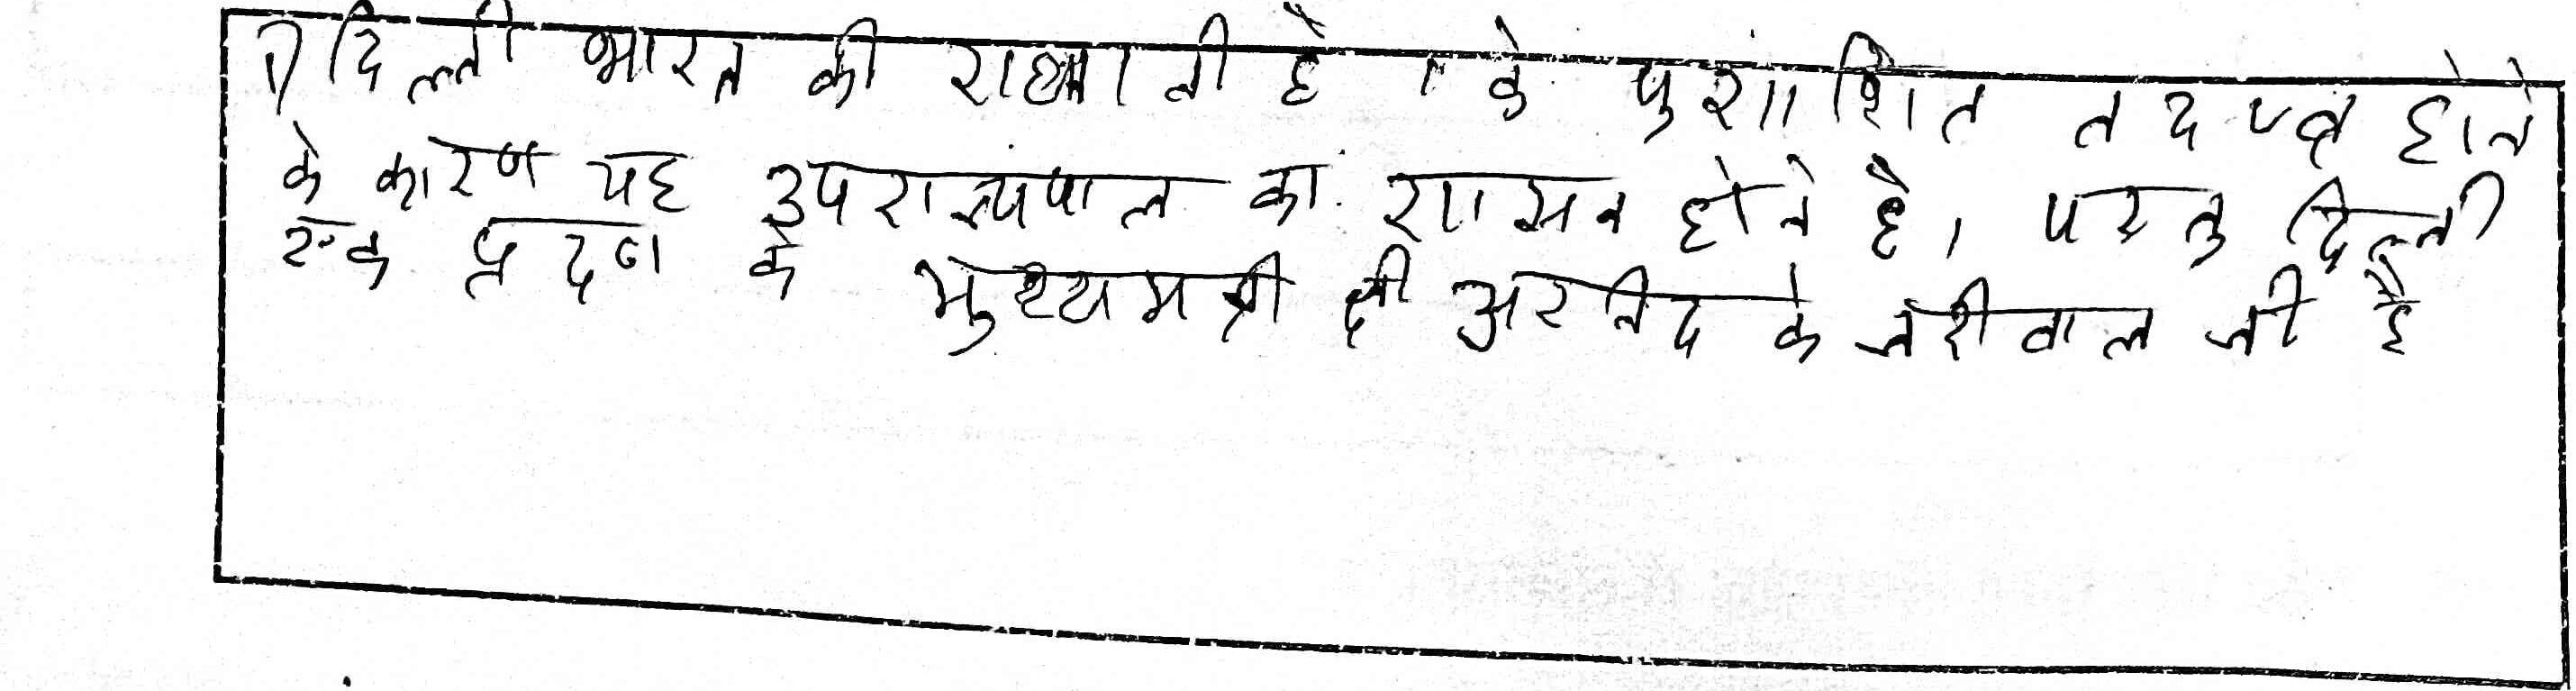 1) दिल्ली भारत की राधानी है । के पुशाशित होने
के कारण यह उपराज्यपाल का शासन होने है, परन्तु दिल्ली
एक के मुख्यमत्री श्री अरविद केजरीवाल जी है